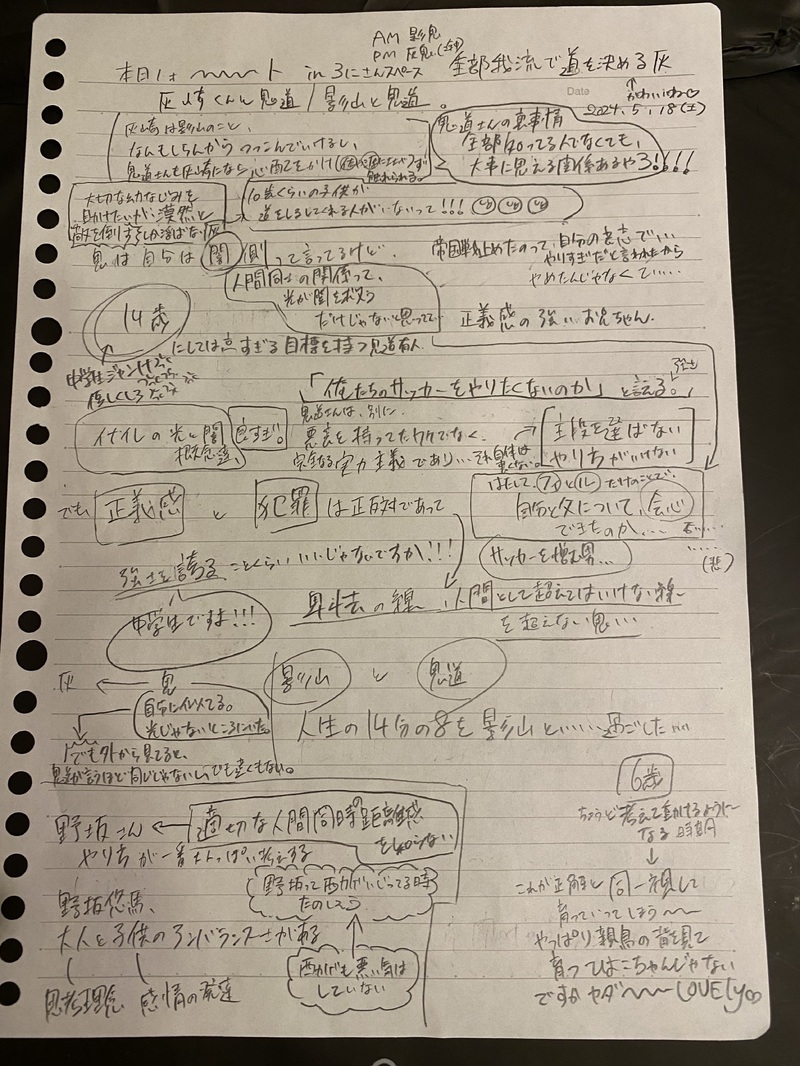 AM 影鬼
PM 灰鬼
本日は 〜〜〜ト in 3にさんスペース 全部我流で道を決める灰
かわいいね♡
Date
2024.5.18(土)
灰崎くんと鬼道/影山と鬼道。
灰崎は影山のこと、
なんもしらんから つっこんでいけるし、
鬼道さんも灰崎になら 心配をかけ
触れられる。
鬼道さんの裏事情
全部知ってる人でなくても、
大事に思える関係あるやろ!!!!
大切な幼なじみを
助けたいが、漠然と
敵を倒すしか選ばない灰
10歳くらいの子供が
道をしるしてくれる人がいないって!!!
鬼は自分は闇側って言ってるけど、
人間同士の関係って、
光が闇を救う
だけじゃないと思ってて
帝国戦止めたのって、自分の意志で…
やりすぎだと言われたから
やめたんじゃなくて……
正義感の強いお兄ちゃん。
14歳
にしては高すぎる目標を持つ鬼道有人
中学生ジャンケ
「俺たちのサッカーをやりたくないのか」と言える。
イナイレの光と闇
概念達、
良すぎ。
鬼道さんは、別に、
悪意を持ってたワケでなく、
完全なる実力主義であり…それ自体は
悪くない。
手段を選ばない
やり方がいけない
でも 正義感 と 犯罪 は正反対であって
はたして、だけのことで、
自分と父について、会心
できたのか…
否……
(悲)
サッカーを憎む男…
強さを誇ることくらいいいじゃないですか!!!
中学生ですよ!!!
昇去の線…人間として超えてはいけない線
を超えない鬼…
灰 ← 鬼
自分に似てる。
光じゃないところにいた。
でも外から見てると、
鬼道が言うほど同じじゃないし、でも遠くもない。
影山 と 鬼道
人生の14分の8を影山といい…過ごした…
6歳
ちょうど考えて動けるように
なる時期
↓
これが正解と同一視して
育っていってしまう〜〜
やっぱり親鳥の背を見て
育つはこちゃんじゃない
ですか ヤダ〜〜〜 LOVEly♡
野坂さん ← 適切な人間同時の距離感
を知らない
やり方が一番大人っぽい考えする
野坂って西かげいじってる時
たのしそう
↑
西かげも悪い気は
していない
野坂悠馬、
大人と子供のアンバランスさがある
思考理念 感情の発達